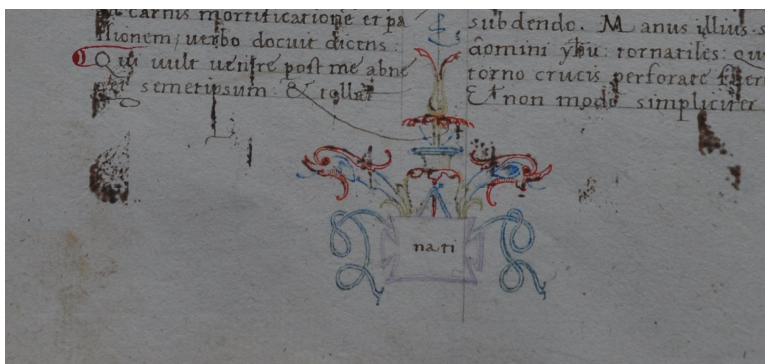 carnis mortificatione et pa
ssionem/ verbo docuit dicens:
Qui vult venire post me abne
get semetipsum: & tollat
subdendo. Manus illius s
domini yhu: tornatiles: qu
torno crucis perforate fuer
Et non modo simpliciter
nati